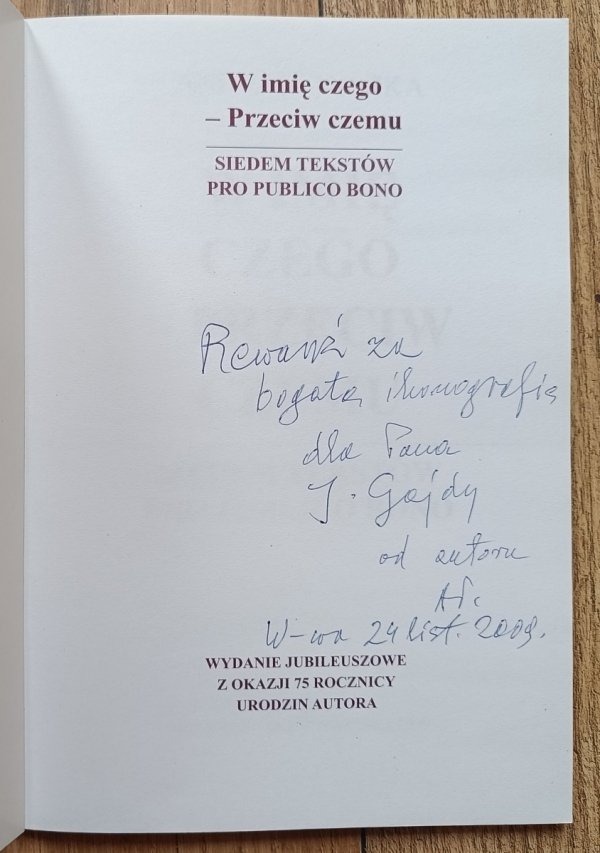 W imię czego
– Przeciw czemu
SIEDEM TEKSTÓW
PRO PUBLICO BONO
Rewanż za
bogatą ikonografię
dla Pana
J. Gajdy
od autora
W-wa 24 list. 2009.
WYDANIE JUBILEUSZOWE
Z OKAZJI 75 ROCZNICY
URODZIN AUTORA